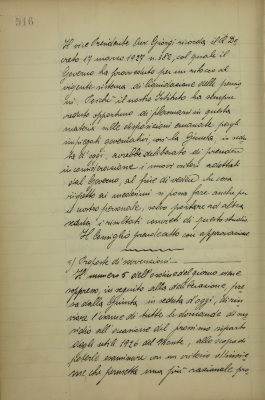 316
Il vice Presidente Cav. Giorgi ricorda il R. De
creto 17 marzo 1927 n. 382, col quale il
Governo ha provveduto per un ritocco al
vigente sistema di liquidazione delle pensio
ni. Poiché il nostro Istituto ha sempre
veduto opportuno di informarsi in questa
materia alle disposizioni emanate per gli
impiegati governativi, la Giunta, in sedu
ta di oggi, avrebbe deliberato di prendere
in considerazione i nuovi criteri adottati
dal Governo, al fine di vedere che cosa
rispetto ai medesimi si possa fare anche per
il nostro personale, salvo portare ad altra
seduta i risultati concreti di questo studio.
Il Consiglio prende atto con approvazione.
2) Proposte di sovvenzioni.
Il numero 5 dell'ordine del giorno viene
soppresso, in seguito alla deliberazione, pre
sa dalla Giunta in seduta d'oggi, di rin
viare l'esame di tutte le domande di sus
sidio all'occasione del prossimo riparto
degli utili 1926 del Monte, allo scopo di
poterle esaminare con un criterio
me che permetta una più razionale